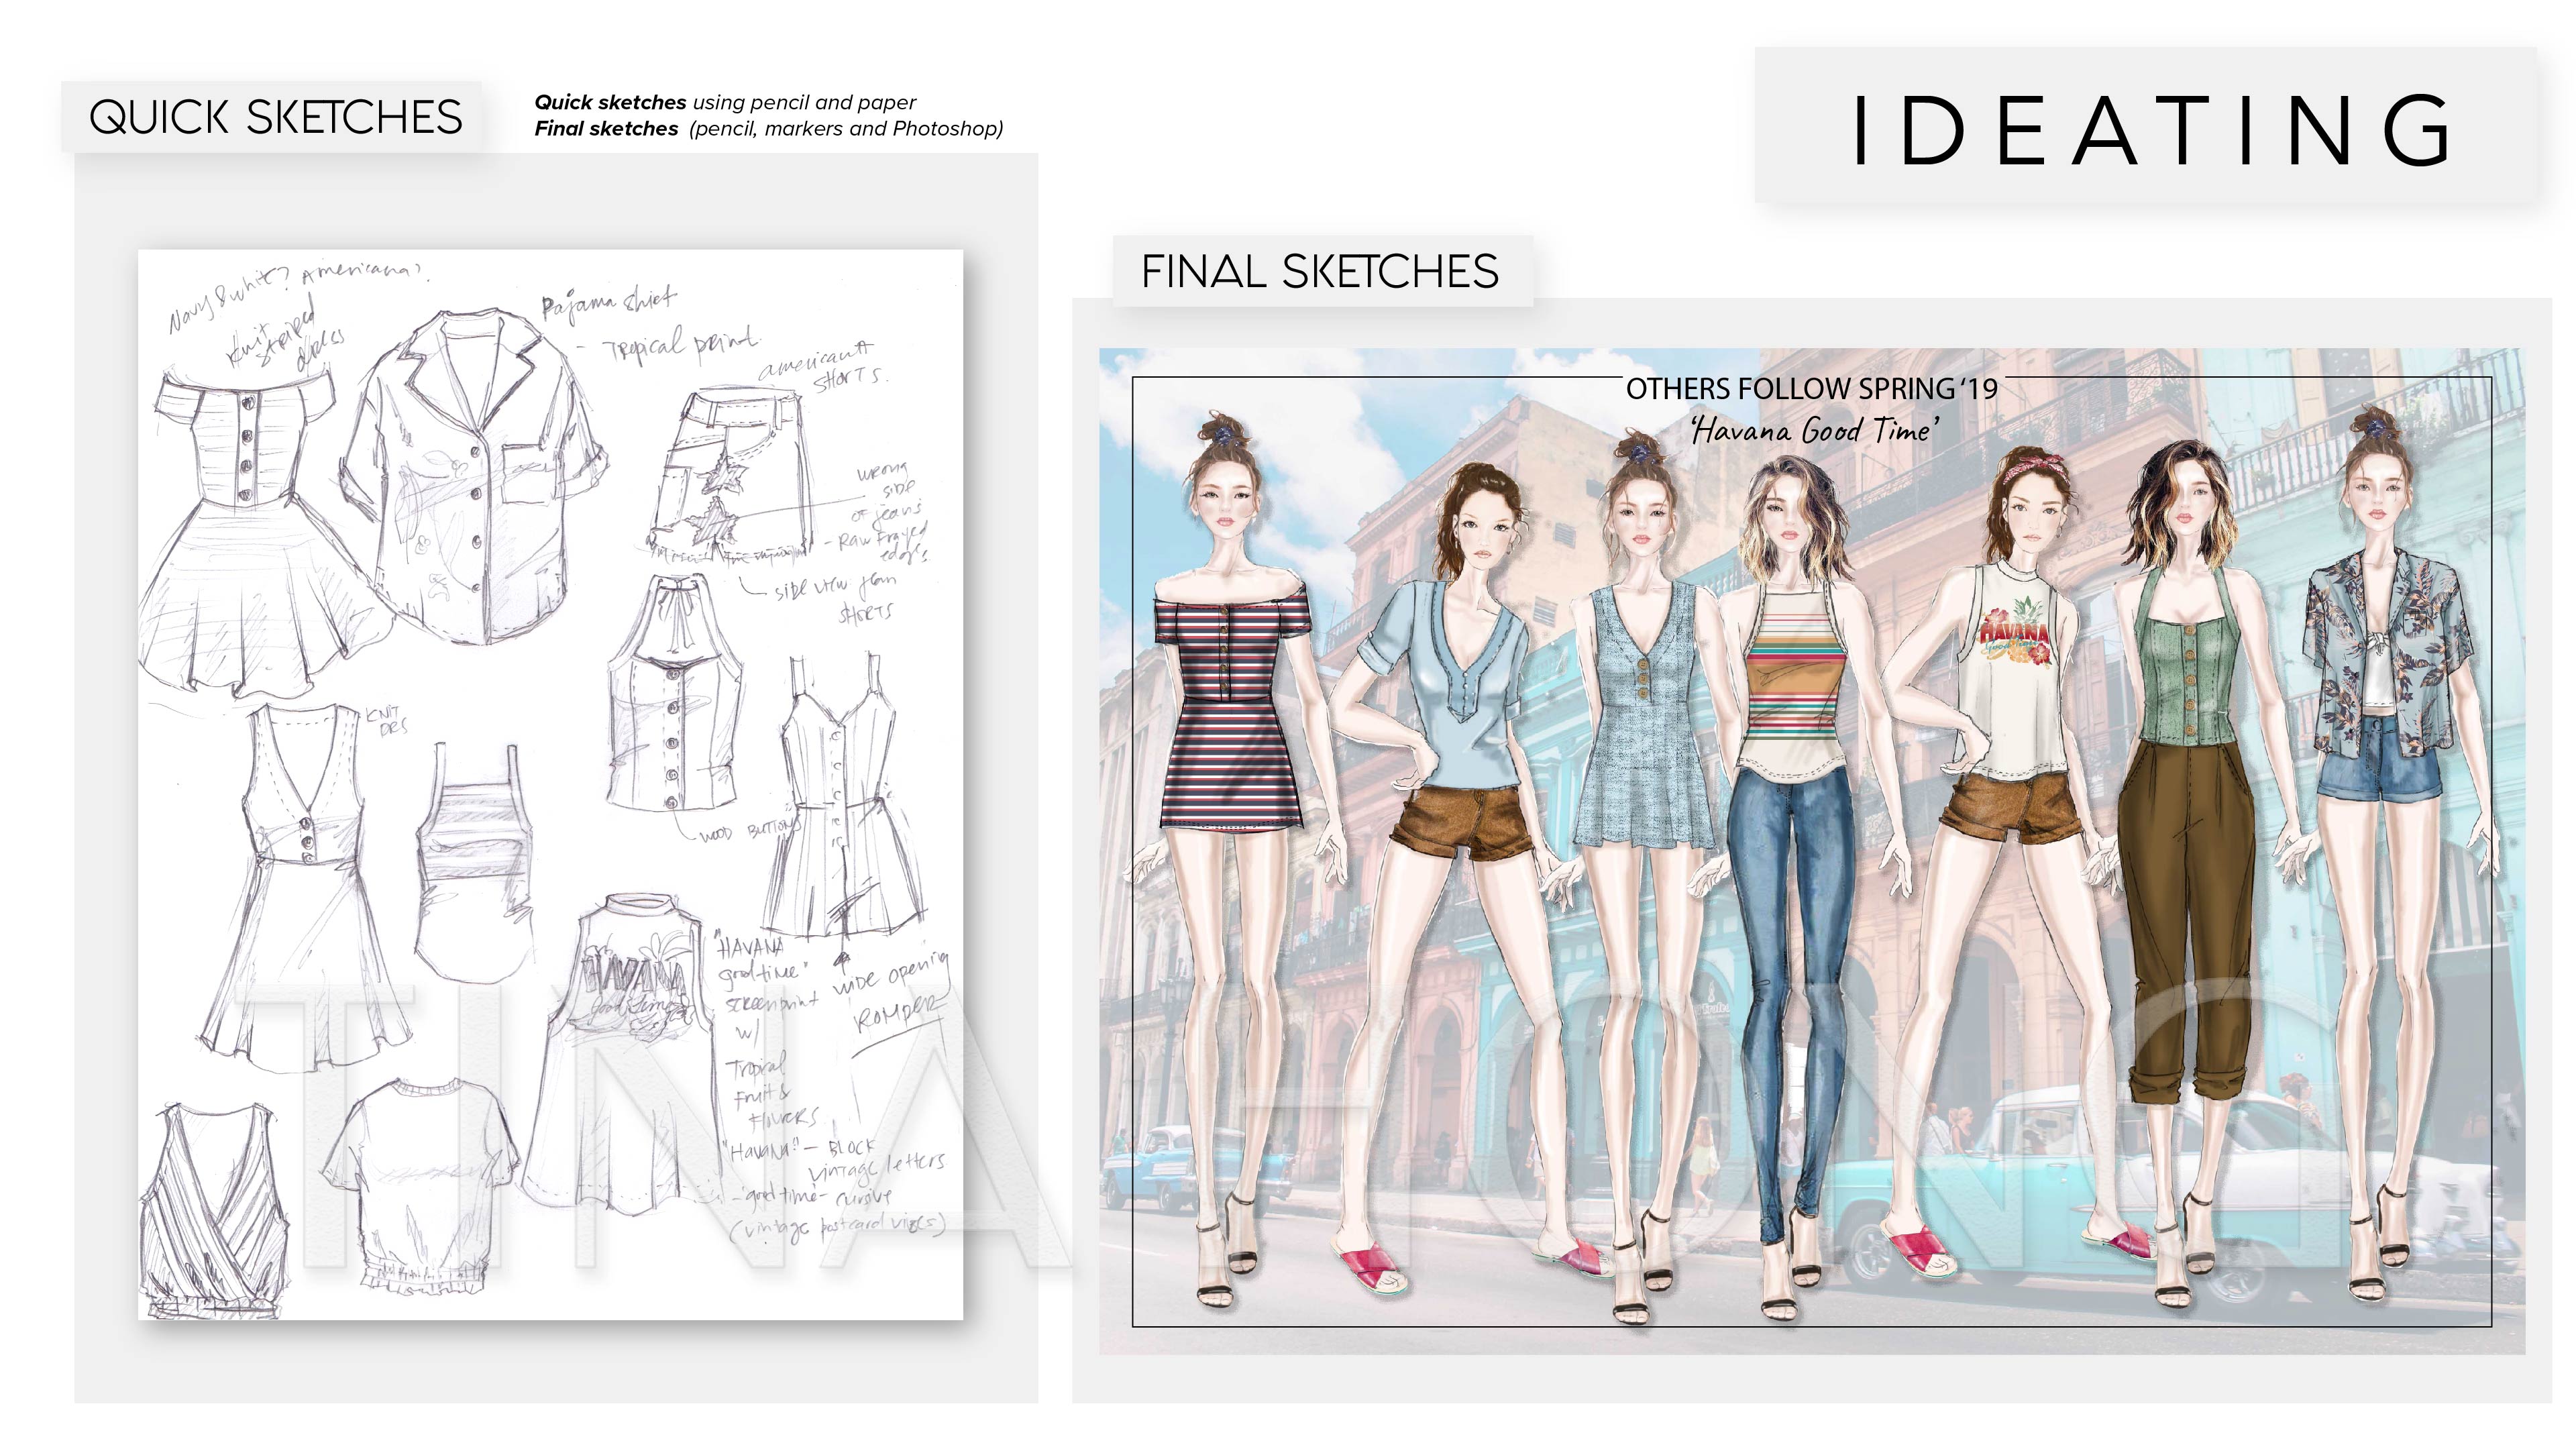 QUICK SKETCHES
Quick sketches using pencil and paper
Final sketches (pencil, markers and Photoshop)
IDEATING
FINAL SKETCHES
Navy & white? Americana?
Knit
striped
dress
Pajama shirt
- Tropical print.
americana
SHORTS.
wrong
side
of jeans
- Raw frayed
edges.
side view jean
SHORTS
KNIT
DRS
WOOD BUTTONS
"HAVANA
good time"
screenprint
w/
Tropical
fruit &
flowers.
wide opening
ROMPER
"Havana" - BLOCK
vintage letters
- "good time" - cursive
(vintage postcard vibes)
HAVANA
good time
OTHERS FOLLOW SPRING '19
'Havana Good Time'
HAVANA
TINA HONG